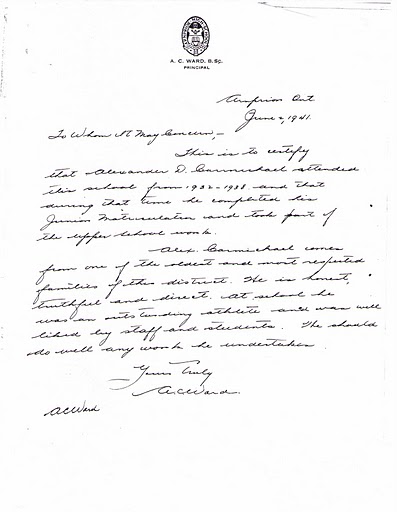 A. C. WARD, B.Sc.
PRINCIPAL
Arnprior Ont
June 2, 1941.
To Whom It May Concern,-
This is to certify
that Alexander D. Carmichael attended
this school from 1932-1938 and that
during that time he completed his
Junior Matriculation and took part of
the Upper School work.
Alex. Carmichael comes
from one of the oldest and most respected
families of the district. He is honest,
truthful and direct. At school he
was an outstanding athlete and was well
liked by staff and students. He should
do well any work he undertakes.
Yours Truly
A.C. Ward.
AC Ward